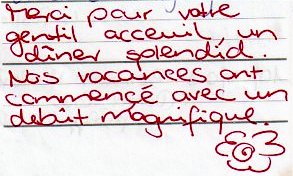 Merci pour votre
gentil acceuil, un
dîner splendid.
Nos vacances ont
commencé avec un
debût magnifique.